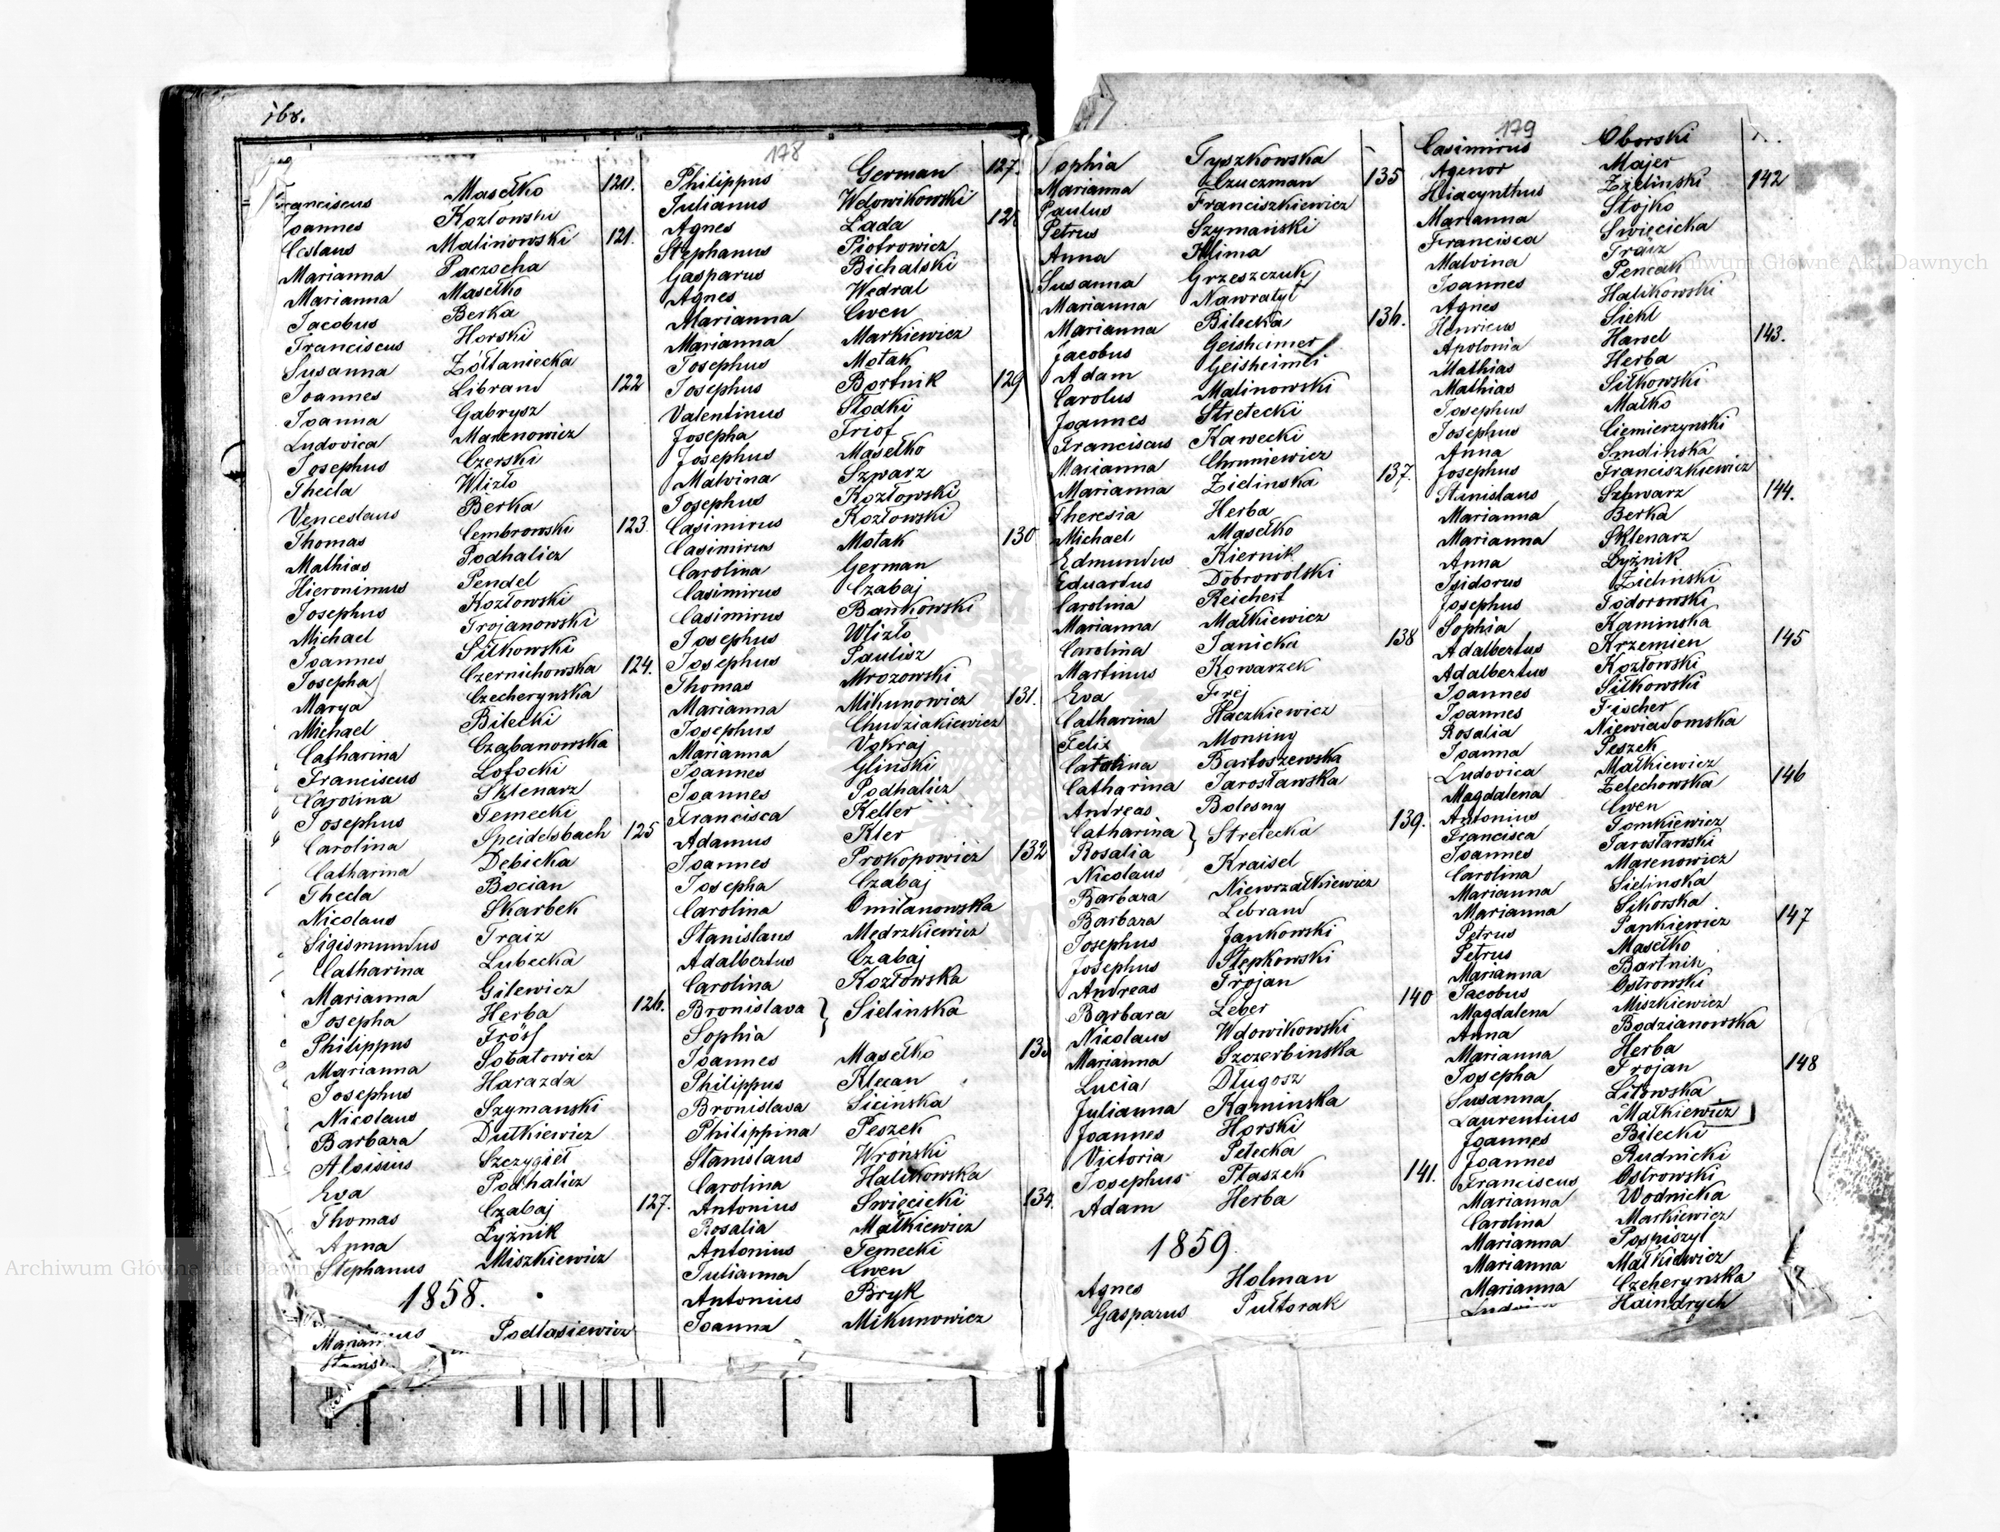 168.
178
Franciscus Masełko 120.
Joannes Kozłowski
Ceslaus Malinowski 121.
Marianna Paczocha
Marianna Masełko
Jacobus Berka
Franciscus Horski
Susanna Żółtaniecka
Joannes Librand 122
Joanna Gabrysz
Ludovica Marenowicz
Josephus Czerski
Thecla Wlizło
Venceslaus Berka
Thomas Cembrowski 123.
Mathias Podhalicz
Hieronimus Pendel
Josephus Kozłowski
Michael Trojanowski
Joannes Siłkowski
Josepha Czernichowska 124.
Marya Czecherynska
Michael Bilecki
Catharina Czabanowska
Franciscus Łotocki
Carolina Sklenarz
Josephus Temecki
Carolina Speidelsbach 125
Catharina Dębicka
Thecla Bocian
Nicolaus Skarbek
Sigismundus Traiz
Catharina Lubecka
Marianna Gilewicz
Josepha Herba 126.
Philippus Frösl
Marianna Sobatowicz
Josephus Harazda
Nicolaus Szymanski
Barbara Dutkiewicz
Aloisius Szczygieł
Eva Podhalicz
Thomas Czabaj 127.
Anna Łyżnik
Stephanus Miszkiewicz
1858.
Podlasiewicz
Philippus German 127.
Julianus Wdowikowski
Agnes Łada 128
Stephanus Piotrowicz
Gasparus Bichalski
Agnes Wedral
Marianna Cwen
Marianna Markiewicz
Josephus Motak
Josephus Bortnik 129
Valentinus Słodki
Josepha Friof
Josephus Masełko
Malvina Szwarz
Josephus Kozłowski
Casimirus Kozłowski
Casimirus Motak 130
Carolina German
Casimirus Czabaj
Casimirus Bankowski
Josephus Wlizło
Josephus Paulisz
Thomas Mrozowski
Marianna Mikunowicz 131.
Josephus Chudziakiewicz
Marianna Vgkraj
Joannes Glinski
Joannes Podhalicz
Francisca Keller
Adamus Kler
Joannes Prokopowicz 132
Josepha Czabaj
Carolina Omilanowska
Stanislaus Mędrzkiewicz
Adalbertus Czabaj
Carolina Kozłowska
Bronislava } Sielinska
Sophia
Joannes Masełko 133
Philippus Klecan
Bronislava Sicinska
Philippina Peszek
Stanislaus Wroński
Carolina Halikowska
Antonius Swięcicki 134.
Rosalia Małkiewicz
Antonius Temecki
Julianna Cwen
Antonius Bryk
Joanna Mikunowicz
Sophia Tyszkowska
Marianna Czuczman 135
Paulus Franciszkiewicz
Petrus Szymański
Anna Klima
Susanna Grzeszczuk
Marianna Nawratył
Marianna Bilecka 136.
Jacobus Geisheimer
Adam Geisheimer
Carolus Malinowski
Joannes Strełecki
Franciscus Kawecki
Marianna Chmniewicz
Marianna Zielinska 137.
Theresia Herba
Michael Masełko
Edmundus Kiernik
Eduardus Dobrowolski
Carolina Reichert
Marianna Małkiewicz
Carolina Janicka 138
Martinus Kowarzek
Eva Frej
Catharina Haczkiewicz
Felix Monsiny
Carolina Bartoszewska
Catharina Jarosławska
Andreas Bolesny
Catharina } Strełecka 139.
Rosalia
Nicolaus Kraisel
Barbara Niewrzałkiewicz
Barbara Lebrand
Josephus Jankowski
Josephus Stepkowski
Andreas Trojan
Barbara Leber 140
Nicolaus Wdowikowski
Marianna Szczerbinska
Lucia Długosz
Julianna Kaminska
Joannes Horski
Victoria Petecka
Josephus Ptaszek 141.
Adam Herba
1859.
Agnes Holman
Gasparus Pułtorak
179
Casimirus Oborski
Agenor Majer
Hiacynthus Zielinski 142
Marianna Stojko
Francisca Swięcicka
Malvina Fraiz
Joannes Pencak
Agnes Halikowski
Henricus Siekl
Apolonia Hawel 143.
Mathias Herba
Mathias Siłkowski
Josephus Małko
Josephus Ciemierzynski
Anna Smolinska
Josephus Franciszkiewicz
Stanislaus Schwarz 144.
Marianna Berka
Marianna Sklenarz
Anna Łyżnik
Isidorus Zielinski
Josephus Todorowski
Sophia Kaminska
Adalbertus Krzemien 145
Adalbertus Kozłowski
Joannes Siłkowski
Joannes Fischer
Rosalia Niewiadomska
Joanna Peszek
Ludovica Małkiewicz
Magdalena Żelechowska 146
Antonius Cwen
Francisca Tomkiewicz
Joannes Jarosławski
Carolina Marenowicz
Marianna Sielinska
Marianna Sikorska
Petrus Pankiewicz 147
Petrus Masełko
Marianna Bartnik
Jacobus Ostrowski
Magdalena Miszkiewicz
Anna Bodzianowska
Marianna Herba
Josepha Trojan 148
Susanna Litowska
Laurentius Małkiewicz
Joannes Bilecki
Joannes Rudnicki
Franciscus Ostrowski
Marianna Wodnicka
Carolina Markiewicz
Marianna Pospiszyl
Marianna Małkiewicz
Marianna Czeherynska
Haindrych
Archiwum Główne Akt Dawnych
Archiwum Główne Akt Dawnych